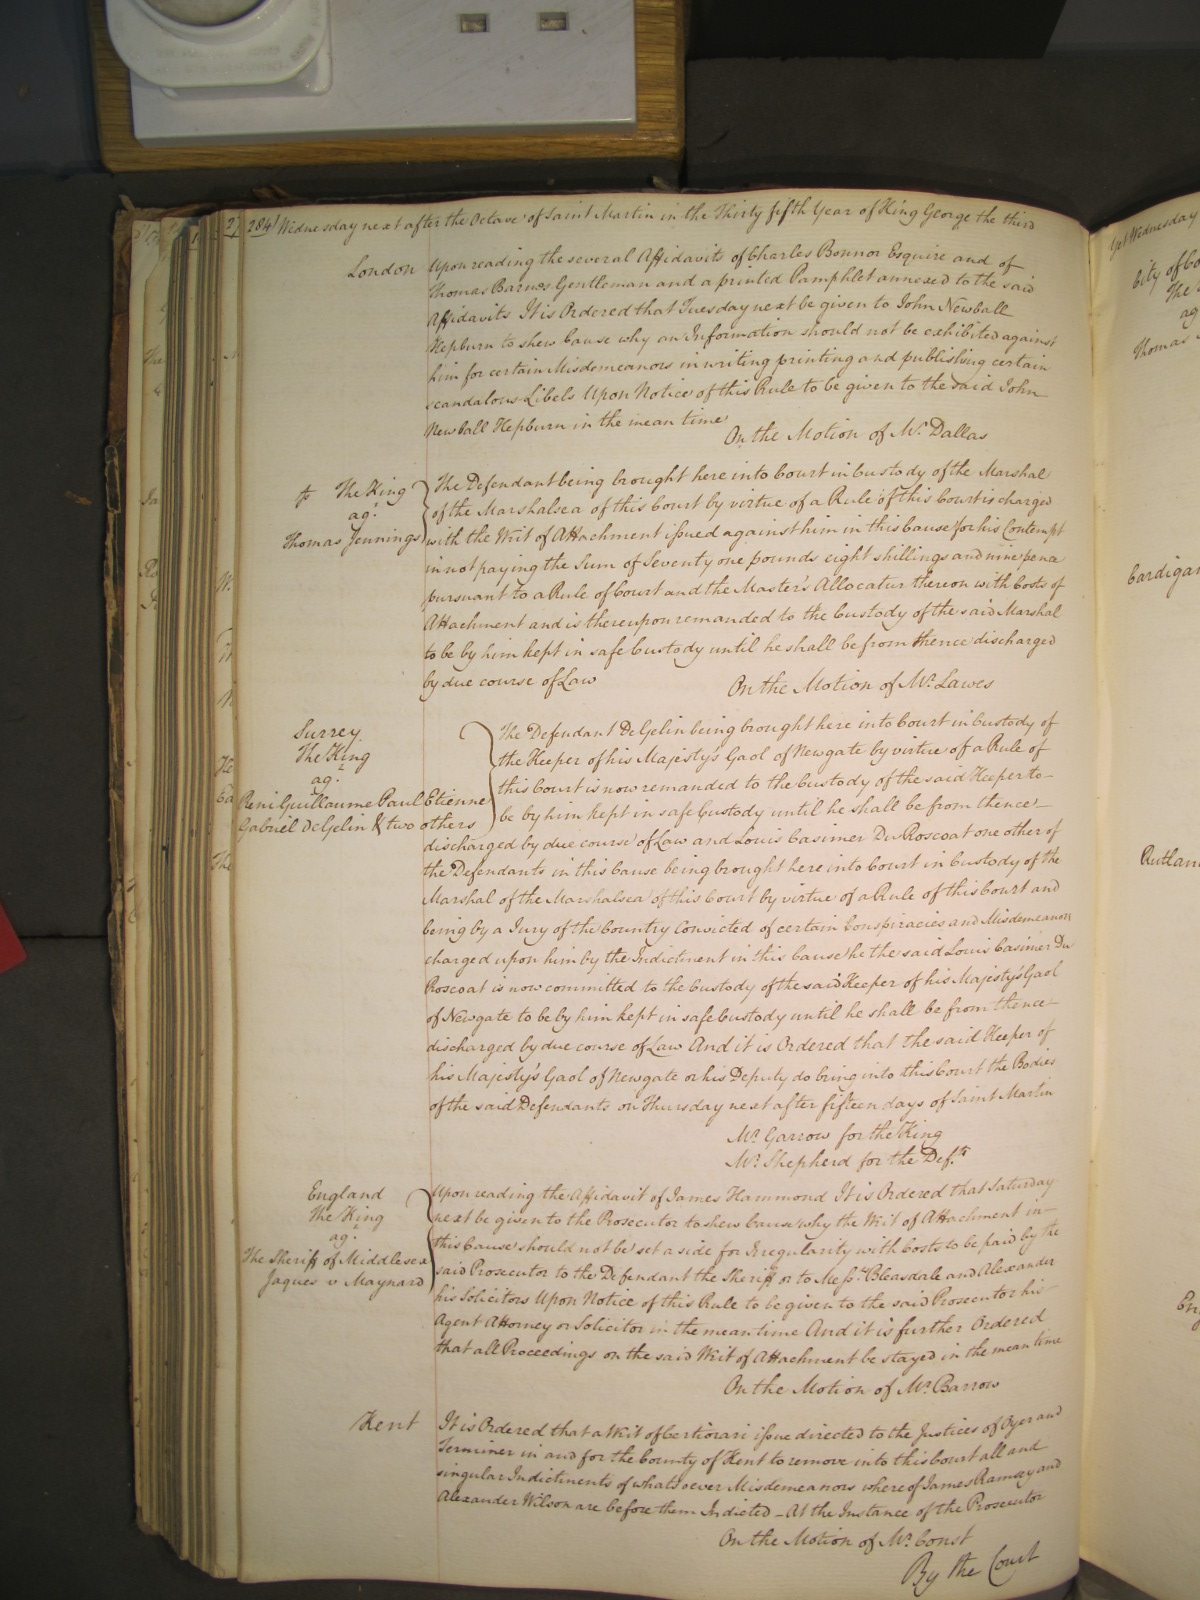 284 Wednesday next after the Octave of Saint Martin in the Thirty fifth Year of King George the third
London Upon reading the several Affidavits of Charles Bonnor Esquire and of
Thomas Barnes Gentleman and a printed Pamphlet annexed to the said
Affidavits It is Ordered that Tuesday next be given to John Newball
Hepburn to shew Cause why an Information should not be exhibited against
him for certain Misdemeanors in writing printing and publishing certain
scandalous Libels Upon Notice of this Rule to be given to the said John
Newball Hepburn in the mean time
On the Motion of Mr. Dallas
The King
agt.
Thomas Jennings
The Defendant being brought here into Court in Custody of the Marshal
of the Marshalsea of this Court by virtue of a Rule of this Court is charged
with the Writ of Attachment issued against him in this Cause for his Contempt
in not paying the Sum of Seventy one pounds eight shillings and nine pence
pursuant to a Rule of Court and the Master's Allocatur thereon with Costs of
Attachment and is thereupon remanded to the Custody of the said Marshal
to be by him kept in safe Custody until he shall be from thence discharged
by due course of Law
On the Motion of Mr. Lawes
Surrey
The King
agt.
Reni Guillaume Paul Etienne
Gabriel De Gelin & two others
The Defendant De Gelin being brought here into Court in Custody of
the Keeper of his Majesty's Gaol of Newgate by virtue of a Rule of
this Court is now remanded to the Custody of the said Keeper to
be by him kept in safe Custody until he shall be from thence
discharged by due course of Law and Louis Casimer Du Roscoat one other of
the Defendants in this Cause being brought here into Court in Custody of the
Marshal of the Marshalsea of this Court by virtue of a Rule of this Court and
being by a Jury of the Country Convicted of certain Conspiracies and Misdemeanors
charged upon him by the Indictment in this Cause he the said Louis Casimer Du
Roscoat is now committed to the Custody of the said Keeper of his Majesty's Gaol
of Newgate to be by him kept in safe Custody until he shall be from thence
discharged by due course of Law And it is Ordered that the said Keeper of
his Majesty's Gaol of Newgate or his Deputy do bring into this Court the Bodies
of the said Defendants on Thursday next after fifteen days of Saint Martin
Mr. Garrow for the King
Mr. Shepherd for the Defts.
England
The King
agt.
The Sheriff of Middlesex
Jaques v Maynard
Upon reading the Affidavit of James Hammond It is Ordered that Saturday
next be given to the Prosecutor to shew Cause why the Writ of Attachment in
this Cause should not be set aside for Irregularity with Costs to be paid by the
said Prosecutor to the Defendant the Sheriff or to Messrs. Bleasdale and Alexander
his Solicitors Upon Notice of this Rule to be given to the said Prosecutor his
Agent Attorney or Solicitor in the mean time And it is further Ordered
that all Proceedings on the said Writ of Attachment be stayed in the mean time
On the Motion of Mr. Barrow
Kent It is Ordered that a Writ of Certiorari issue directed to the Justices of Oyer and
Terminer in and for the County of Kent to remove into this Court all and
singular Indictments of whatsoever Misdemeanors whereof James Ramsay and
Alexander Wilson are before them Indicted - At the Instance of the Prosecutor
On the Motion of Mr. Const
By the Court
Wednesday
City of
The
ag
Thomas
Cardigan